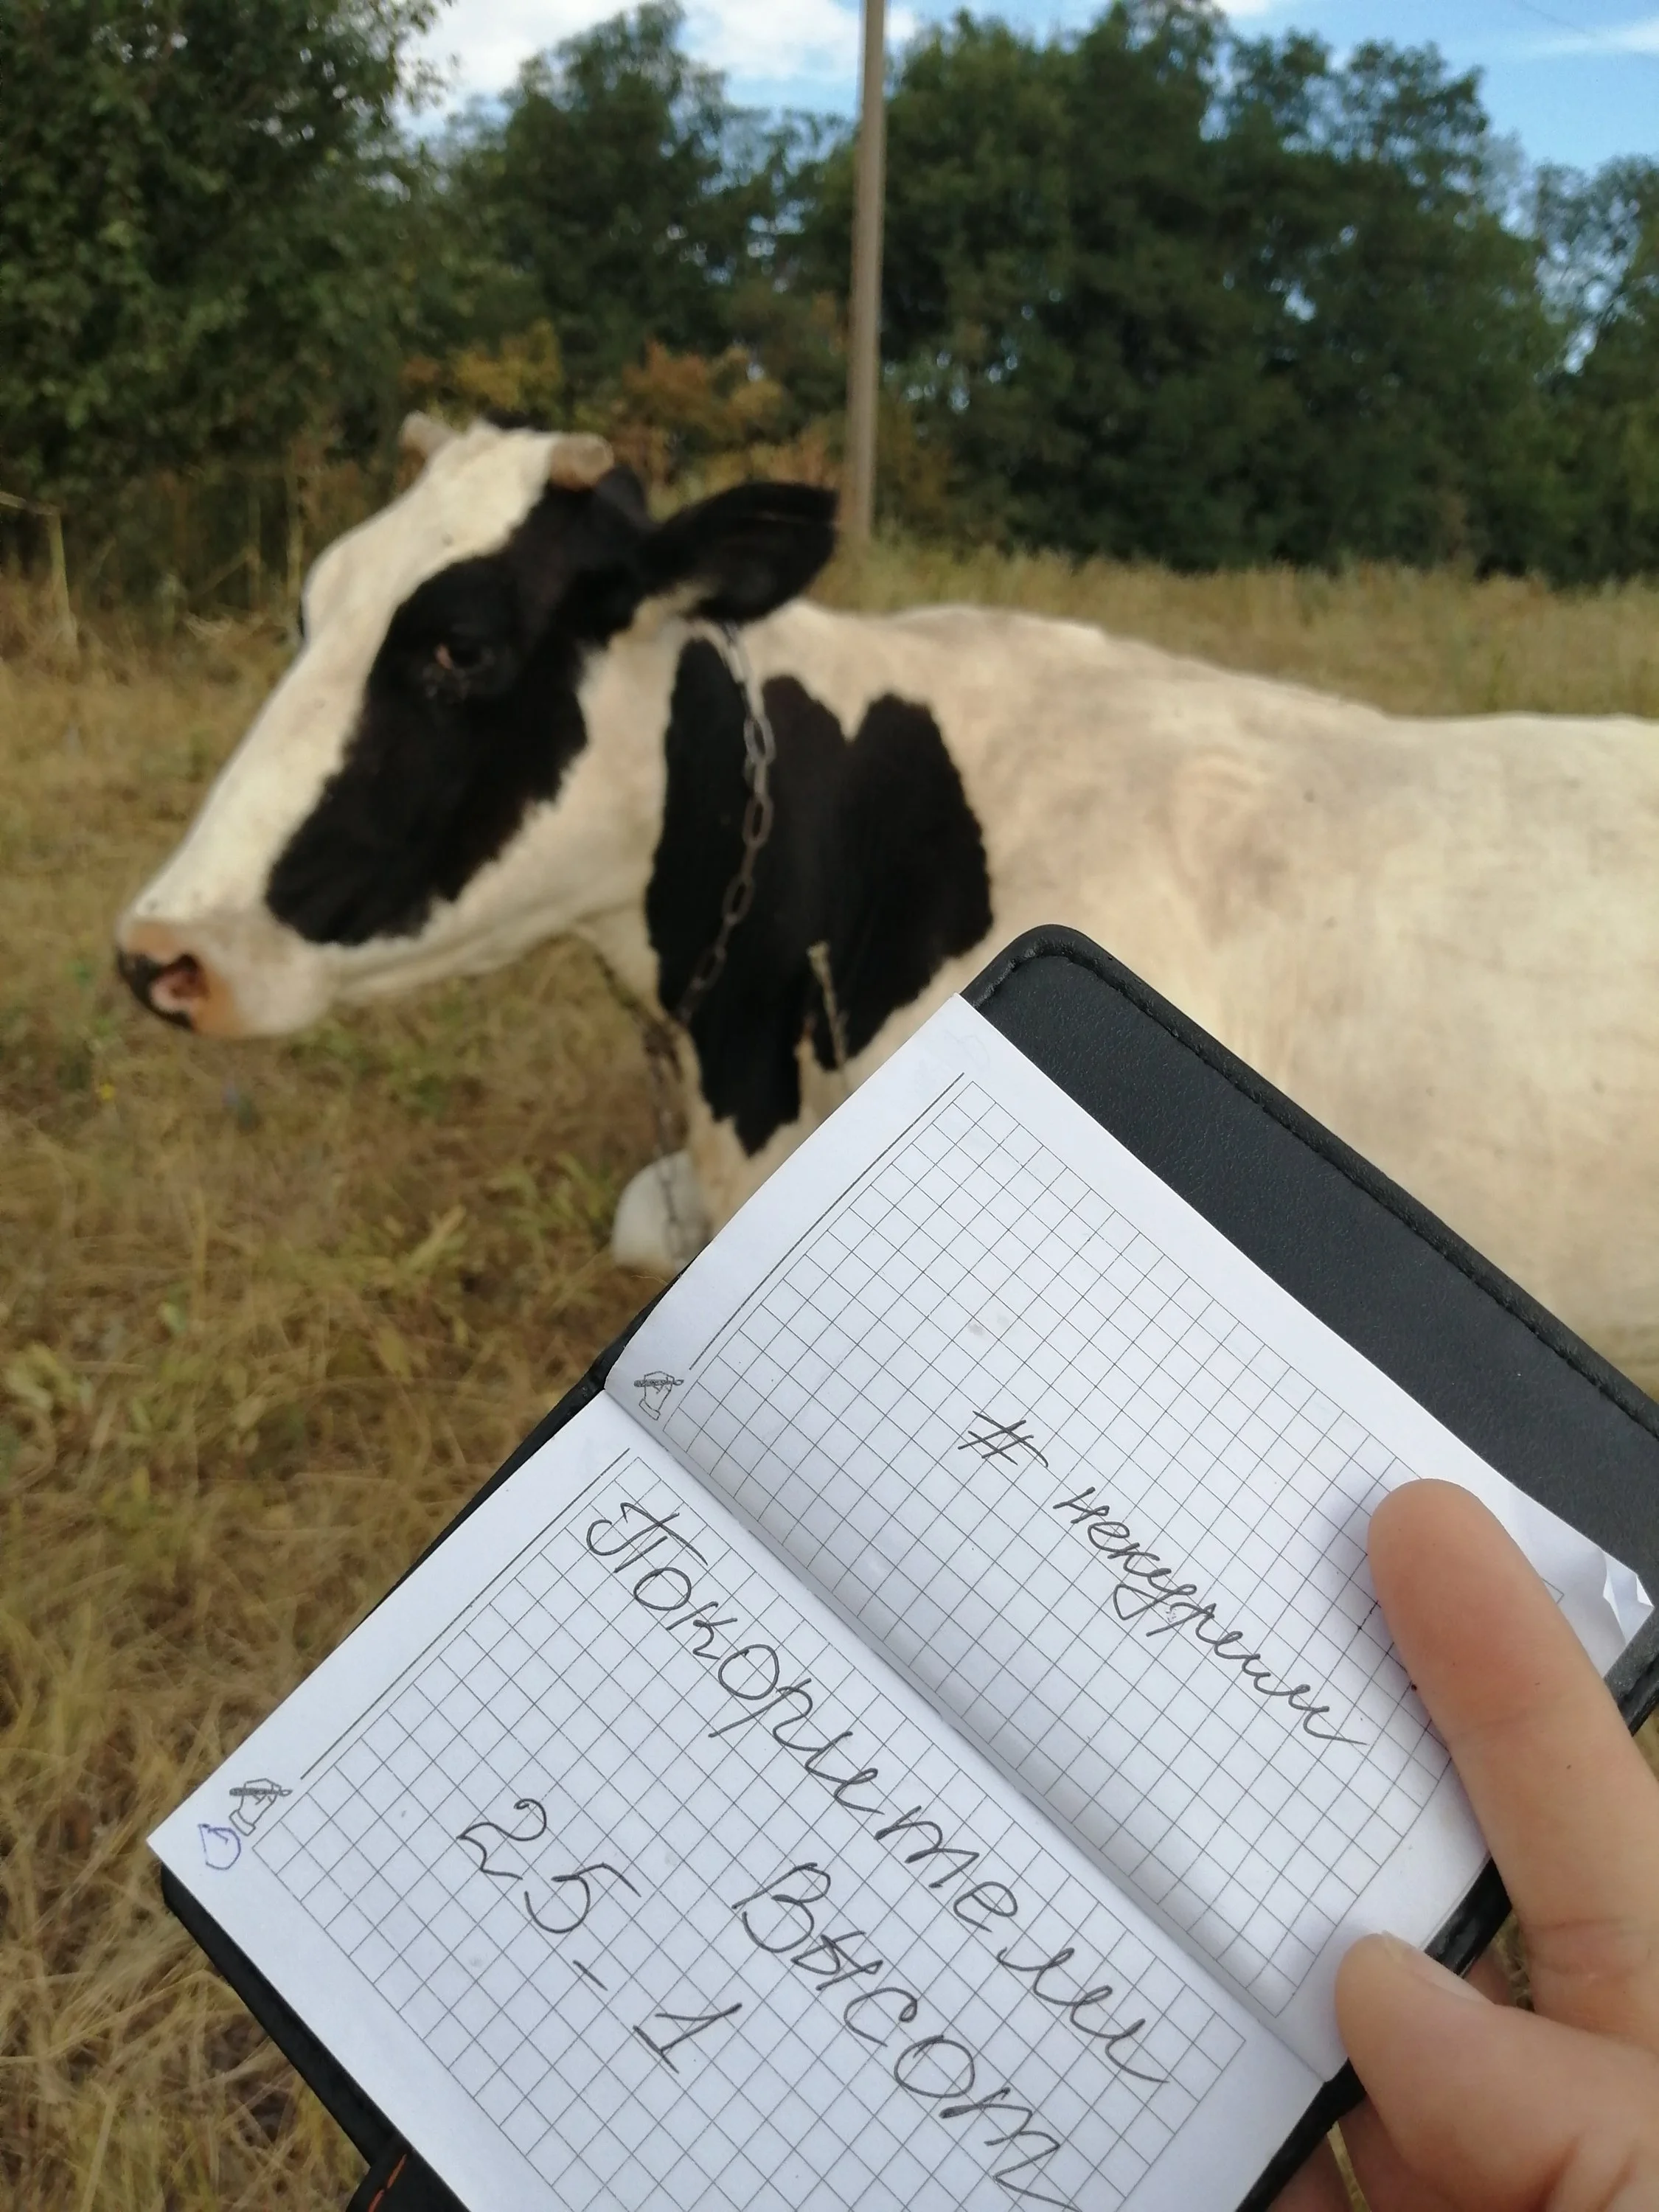 # некурим
Покорители
Высот
25-1